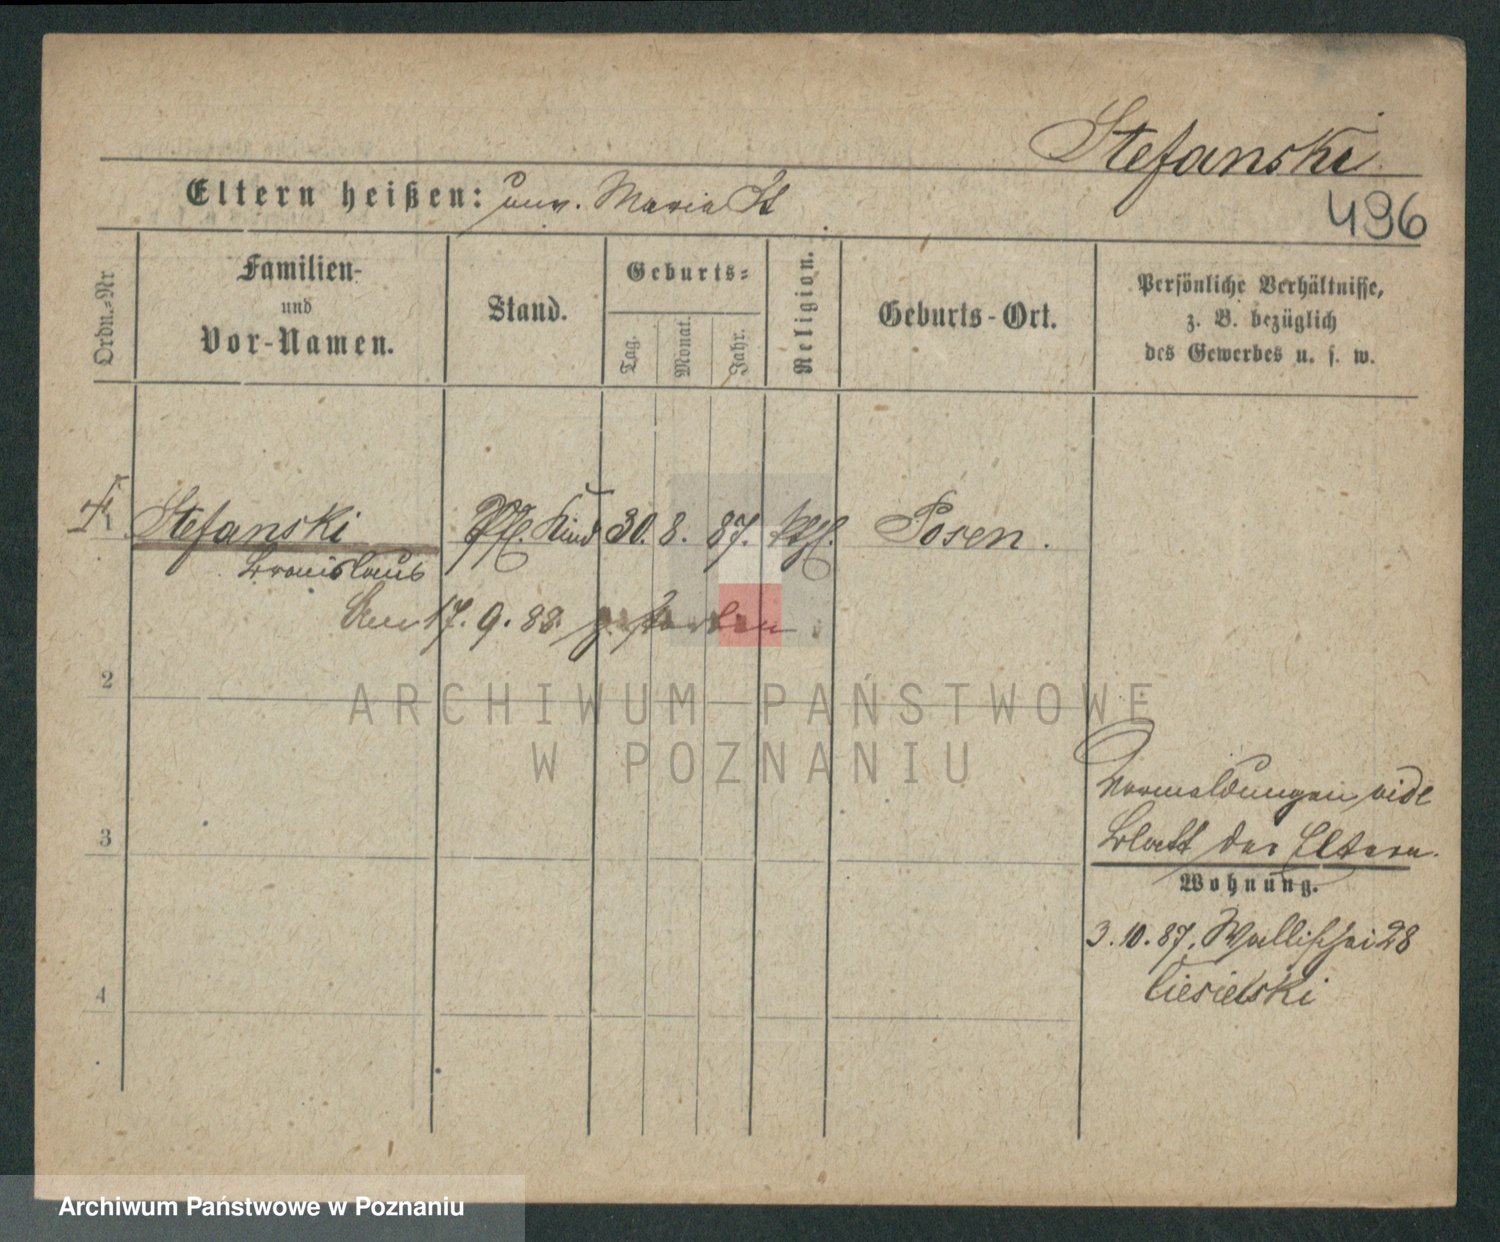 Stefanski
Eltern heißen: unv. Maria St
496
Ordn.-Nr
Familien-
und
Vor-Namen.
Stand.
Geburts-
Tag.
Monat.
Jahr.
Religion.
Geburts-Ort.
Persönliche Verhältnisse,
z. B. bezüglich
des Gewerbes u. s. w.
Stefanski Pfl. Kind 30. 8. 87. kth. Posen.
Bronislaus
Am 17. 9. 88. gestorben
2
ARCHIWUM PAŃSTWOWE
W POZNANIU
3
4
Vormeldungen vide
Blatt der Eltern.
Wohnung.
3. 10. 87. Wallischei 28
Ciesielski
Archiwum Państwowe w Poznaniu